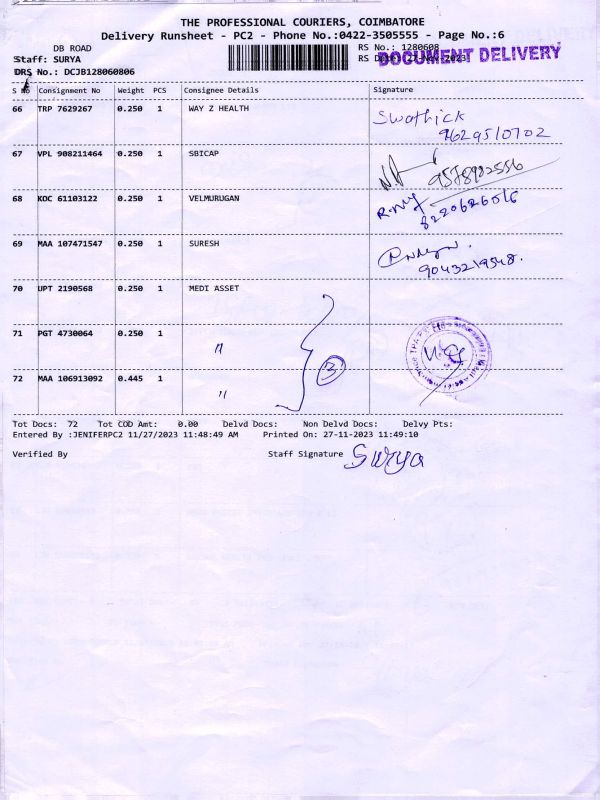 THE PROFESSIONAL COURIERS, COIMBATORE
Delivery Runsheet - PC2 - Phone No.:0422-3505555 - Page No.:6
DB ROAD
RS No.: 1280608
Staff: SURYA
RS Dt.: 27-Nov-2023
DOCUMENT DELIVERY
DRS No.: DCJB128060806
S No Consignment No Weight PCS Consignee Details Signature
66 TRP 7629267 0.250 1 WAY Z HEALTH Swathick
9629510702
67 VPL 908211464 0.250 1 SBICAP
9578982556
68 KOC 61103122 0.250 1 VELMURUGAN
8220626016
69 MAA 107471547 0.250 1 SURESH
9043219548.
70 UPT 2190568 0.250 1 MEDI ASSET
71 PGT 4730064 0.250 1 "
3
72 MAA 106913092 0.445 1 "
Tot Docs: 72 Tot COD Amt: 0.00 Delvd Docs: Non Delvd Docs: Delvy Pts:
Entered By :JENIFERPC2 11/27/2023 11:48:49 AM Printed On: 27-11-2023 11:49:10
Verified By Staff Signature Surya